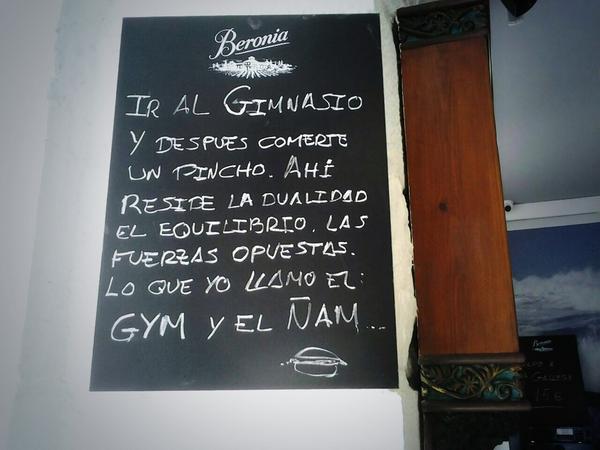 Beronia
IR AL GIMNASIO
Y DESPUES COMERTE
UN PINCHO. AHÍ
RESIDE LA DUALIDAD
EL EQUILIBRIO. LAS
FUERZAS OPUESTAS.
LO QUE YO LLAMO EL:
GYM Y EL ÑAM...
Beronia
15€